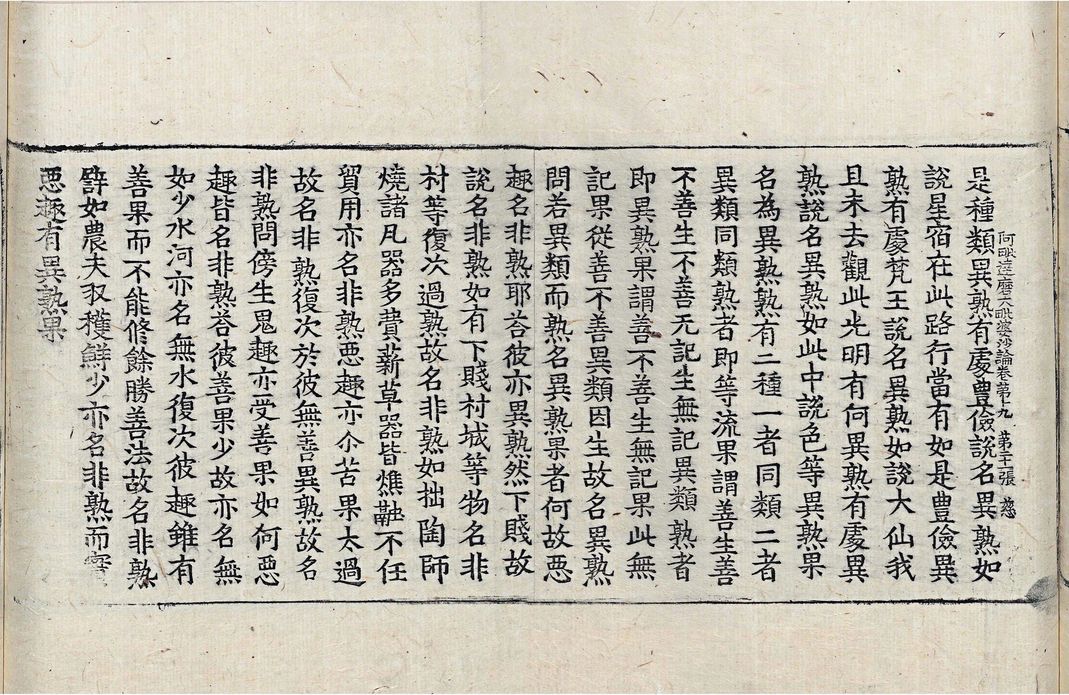 是種類異熟有處豊儉說名異熟如
阿毗達磨大毗婆沙論卷第十九 第二十張 慈
說星宿在此路行當有如是豊儉異
熟有處梵王說名異熟如說大仙我
且未去觀此光明有何異熟有處異
熟說名異熟如此中說色等異熟果
名為異熟熟有二種一者同類二者
異類同類熟者即等流果謂善生善
不善生不善无記生無記異類熟者
即異熟果謂善不善生無記果此無
記果從善不善異類因生故名異熟
問若異類而熟名異熟果者何故惡
趣名非熟耶荅彼亦異熟然下賤故
說名非熟如有下賤村城等物名非
村等復次過熟故名非熟如拙陶師
燒諸凡器多費薪草器皆燋融不任
貿用亦名非熟惡趣亦尒苦果太過
故名非熟復次於彼無善異熟故名
非熟問傍生鬼趣亦受善果如何惡
趣皆名非熟荅彼善果少故亦名無
如少水河亦名無水復次彼趣雖有
善果而不能修餘勝善法故名非熟
譬如農夫収穫鮮少亦名非熟而實
惡趣有異熟果